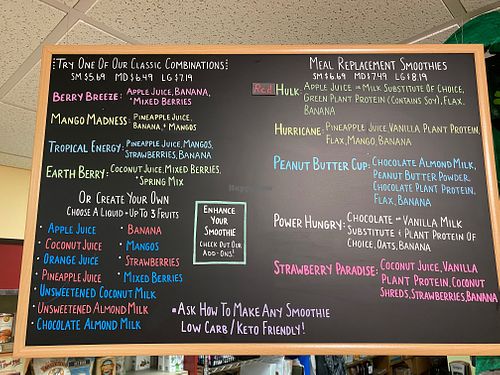 Try One Of Our Classic Combinations
Sm $5.69 Md $6.49 Lg $7.19
Berry Breeze: Apple Juice, Banana,
+ Mixed Berries
Mango Madness: Pineapple Juice,
Banana, + Mangos
Tropical Energy: Pineapple Juice, Mangos,
Strawberries, Banana
Earth Berry: Coconut Juice, Mixed Berries,
+ Spring Mix
Or Create Your Own
Choose A Liquid + Up To 3 Fruits
• Apple Juice
• Coconut Juice
• Orange Juice
• Pineapple Juice
• Unsweetened Coconut Milk
• Unsweetened Almond Milk
• Chocolate Almond Milk
• Banana
• Mangos
• Strawberries
• Mixed Berries
Enhance
Your
Smoothie
Check Out Our
Add-Ons!
* Ask How To Make Any Smoothie
Low Carb / Keto Friendly!
Meal Replacement Smoothies
Sm $6.69 Md $7.49 Lg $8.19
Red Hulk: Apple Juice or Milk Substitute Of Choice,
Green Plant Protein (Contains Soy), Flax,
Banana
Hurricane: Pineapple Juice, Vanilla Plant Protein,
Flax, Mango, Banana
Peanut Butter Cup: Chocolate Almond Milk,
Peanut Butter Powder,
Chocolate Plant Protein,
Flax, Banana
Power Hungry: Chocolate or Vanilla Milk
Substitute + Plant Protein Of
Choice, Oats, Banana
Strawberry Paradise: Coconut Juice, Vanilla
Plant Protein, Coconut
Shreds, Strawberries, Banana